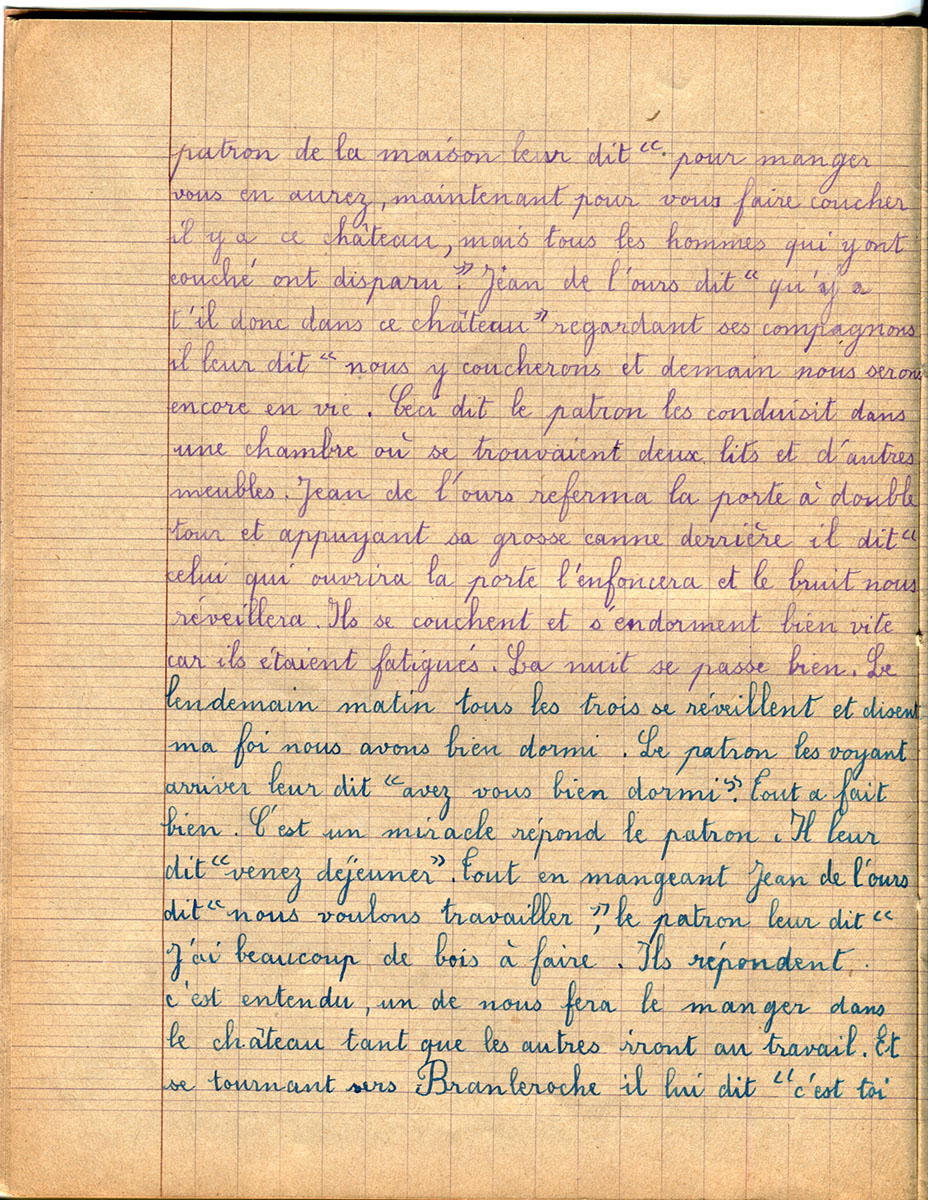 patron de la maison leur dit “ pour manger
vous en aurez, maintenant pour vous faire coucher
il y a ce château, mais tous les hommes qui y ont
couché ont disparu”. Jean de l'ours dit “ qu'y a
t'il donc dans ce château” regardant ses compagnons
il leur dit “ nous y coucherons et demain nous serons
encore en vie. Ceci dit le patron les conduisit dans
une chambre où se trouvaient deux lits et d'autres
meubles. Jean de l'ours referma la porte à double
tour et appuyant sa grosse canne derrière il dit “
celui qui ouvrira la porte l'enfoncera et le bruit nous
réveillera. Ils se couchent et s'endorment bien vite
car ils étaient fatigués. La nuit se passe bien. Le
lendemain matin tous les trois se réveillent et disent
ma foi nous avons bien dormi. Le patron les voyant
arriver leur dit “avez vous bien dormi”. Tout a fait
bien. C'est un miracle répond le patron. Il leur
dit “venez déjeuner”. Tout en mangeant Jean de l'ours
dit “nous voulons travailler”, le patron leur dit “
J'ai beaucoup de bois à faire. Ils répondent,
c'est entendu, un de nous fera le manger dans
le château tant que les autres iront au travail. Et
se tournant vers Branleroche il lui dit “c'est toi